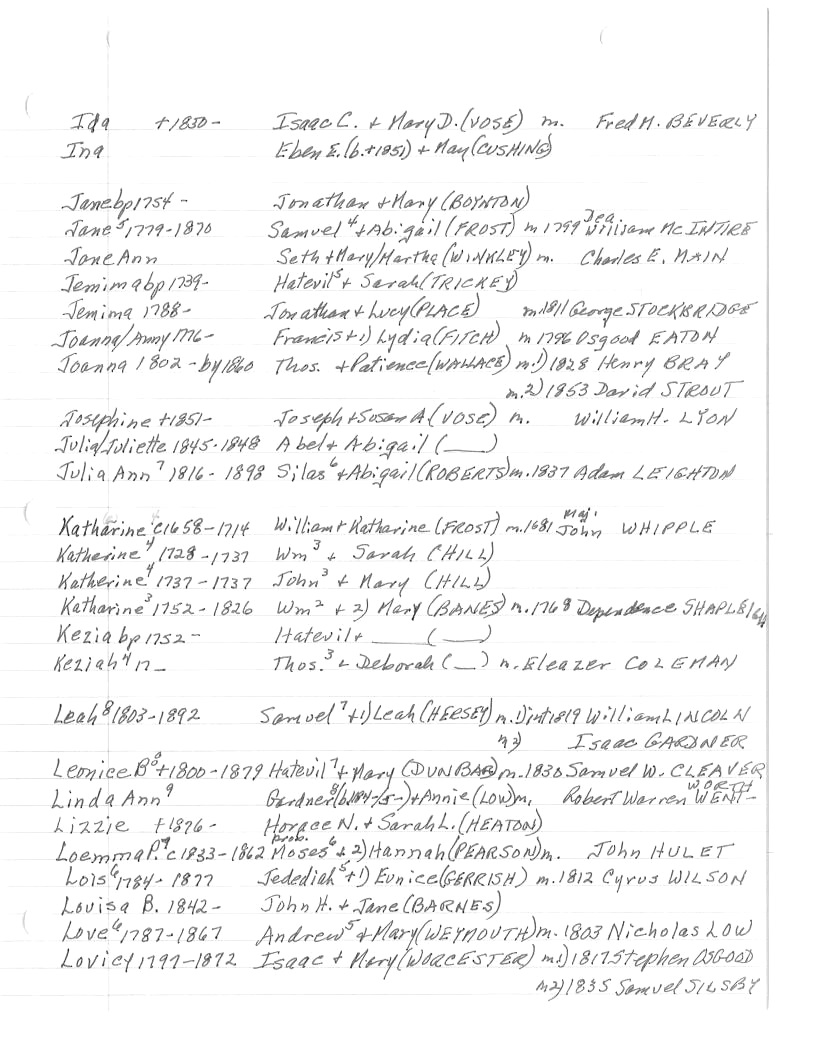 Ida +1850- Isaac C. + Mary D. (VOSE) m. Fred M. BEVERLY
Ina Eben E. (b.+1851) + May (CUSHING)
Jane bp 1754- Jonathan + Mary (BOYNTON)
Jane 5 1779-1870 Samuel 4 + Abigail (FROST) m 1799 Dea William Mc INTIRE
Jane Ann Seth + Mary/Martha (WINKLEY) m. Charles E. MAIN
Jemima bp 1739- Hatevil 5 + Sarah (TRICKEY)
Jemima 1788- Jonathan + Lucy (PLACE) m. 1811 George STOCKBRIDGE
Joanna/Anny 1776- Francis + 1) Lydia (FITCH) m 1796 Osgood EATON
Joanna 1802 - by 1860 Thos. + Patience (WALLACE) m. 1) 1828 Henry BRAY
m. 2) 1853 David STROUT
Josephine +1851- Joseph + Susan A (VOSE) m. William H. LYON
Julia/Juliette 1845-1848 Abel + Abigail (___)
Julia Ann 7 1816 - 1898 Silas 6 + Abigail (ROBERTS) m. 1837 Adam LEIGHTON
Katharine c1658-1714 William + Katharine (FROST) m. 1681 Maj. John WHIPPLE
Katherine 4 1728-1737 Wm 3 + Sarah (HILL)
Katherine 4 1737-1737 John 3 + Mary (HILL)
Katharine 3 1752-1826 Wm 2 + 2) Mary (BANES) m. 1768 Dependence SHAPLEIGH
Kezia bp 1752- Hatevil + ___ (___)
Keziah 4 17_ Thos. 3 + Deborah (__) m. Eleazer COLEMAN
Leah 8 1803-1892 Samuel 7 + 1) Leah (HERSEY) m. 1) int 1819 William LINCOLN
m 2) Isaac GARDNER
Leonice B 8 +1800-1879 Hatevil 7 + Mary (DUNBAR) m. 1830 Samuel W. CLEAVER
Linda Ann 9 Gardner 8 (b. 184-/5-) + Annie (LOW) m. Robert Warren WENTWORTH
Lizzie +1876- Horace N. + Sarah L. (HEATON)
Loemma P. 7 c1833-1862 prob. Moses 6 + 2) Hannah (PEARSON) m. John HULET
Lois 6 1784-1877 Jedediah 5 + 1) Eunice (GERRISH) m. 1812 Cyrus WILSON
Louisa B. 1842- John H. + Jane (BARNES)
Love 6 1787-1867 Andrew 5 + Mary (WEYMOUTH) m. 1803 Nicholas LOW
Lovicy 1797-1872 Isaac + Mary (WORCESTER) m. 1) 1817 Stephen OSGOOD
m 2) 1835 Samuel SILSBY